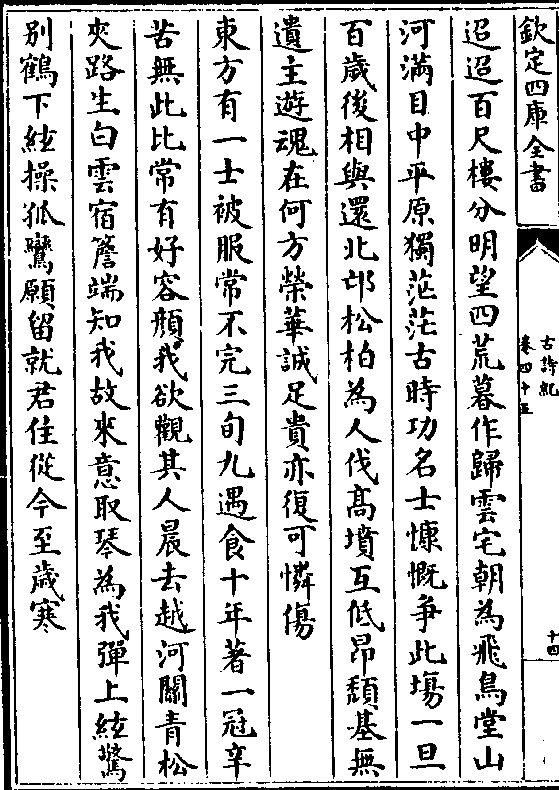 欽定四庫全書
古詩紀
卷四十五
十四
迢迢百尺樓分明望四荒暮作歸雲宅朝為飛鳥堂山
河滿目中平原獨茫茫古時功名士慷慨爭此塲一旦
百歲後相與還北邙松柏為人伐髙墳互低昂頽基無
遺主遊魂在何方榮華誠足貴亦復可憐傷
東方有一士被服常不完三旬九遇食十年著一冠辛
苦無此比常有好容顔我欲觀其人晨去越河關青松
夾路生白雲宿簷端知我故來意取琴為我彈上絃驚
别鶴下絃操孤鸞願留就君住從今至歲寒